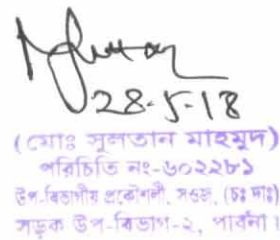 28-5-18
(মোঃ সুলতান মাহমুদ)
পরিচিতি নং-৬০২২৮১
উপ-বিভাগীয় প্রকৌশলী, সওজ, (চঃ দাঃ)
সড়ক উপ-বিভাগ-২, পাবনা।